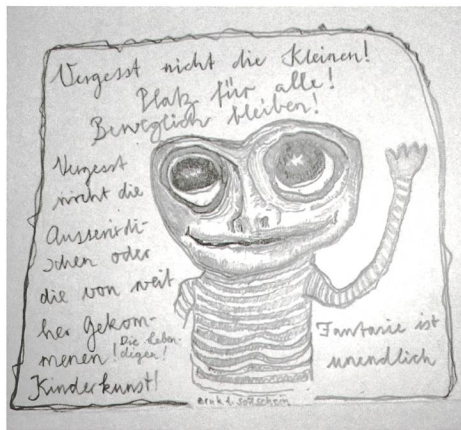 Vergesst nicht die Kleinen!
Platz für alle!
Beweglich bleiben!
Vergesst
nicht die
Ausserirdi-
schen oder
die von weit
her Gekom-
menen! Die leben-
digen!
Kinderkunst!
Fantasie ist
unendlich